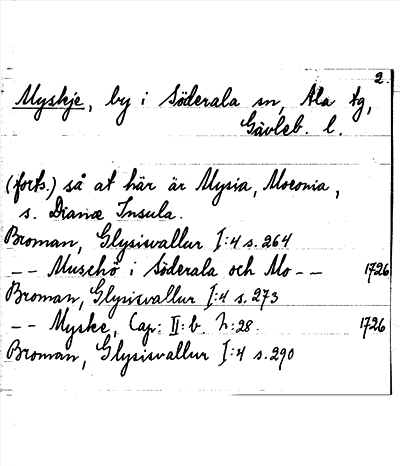 2.
Myskje, by i Söderala sn, Ala tg,
Gävleb. l.
(forts.) så at här är Mysia, Moeonia,
s. Dianæ Insula.
Broman, Glysisvallur I:4 s. 264
-- Muschö i Söderala och Mo -- 1726
Broman, Glysisvallur I:4 s. 273
-- Myske, Cap: II: b. h: 28. 1726
Broman, Glysisvallur I:4 s. 290